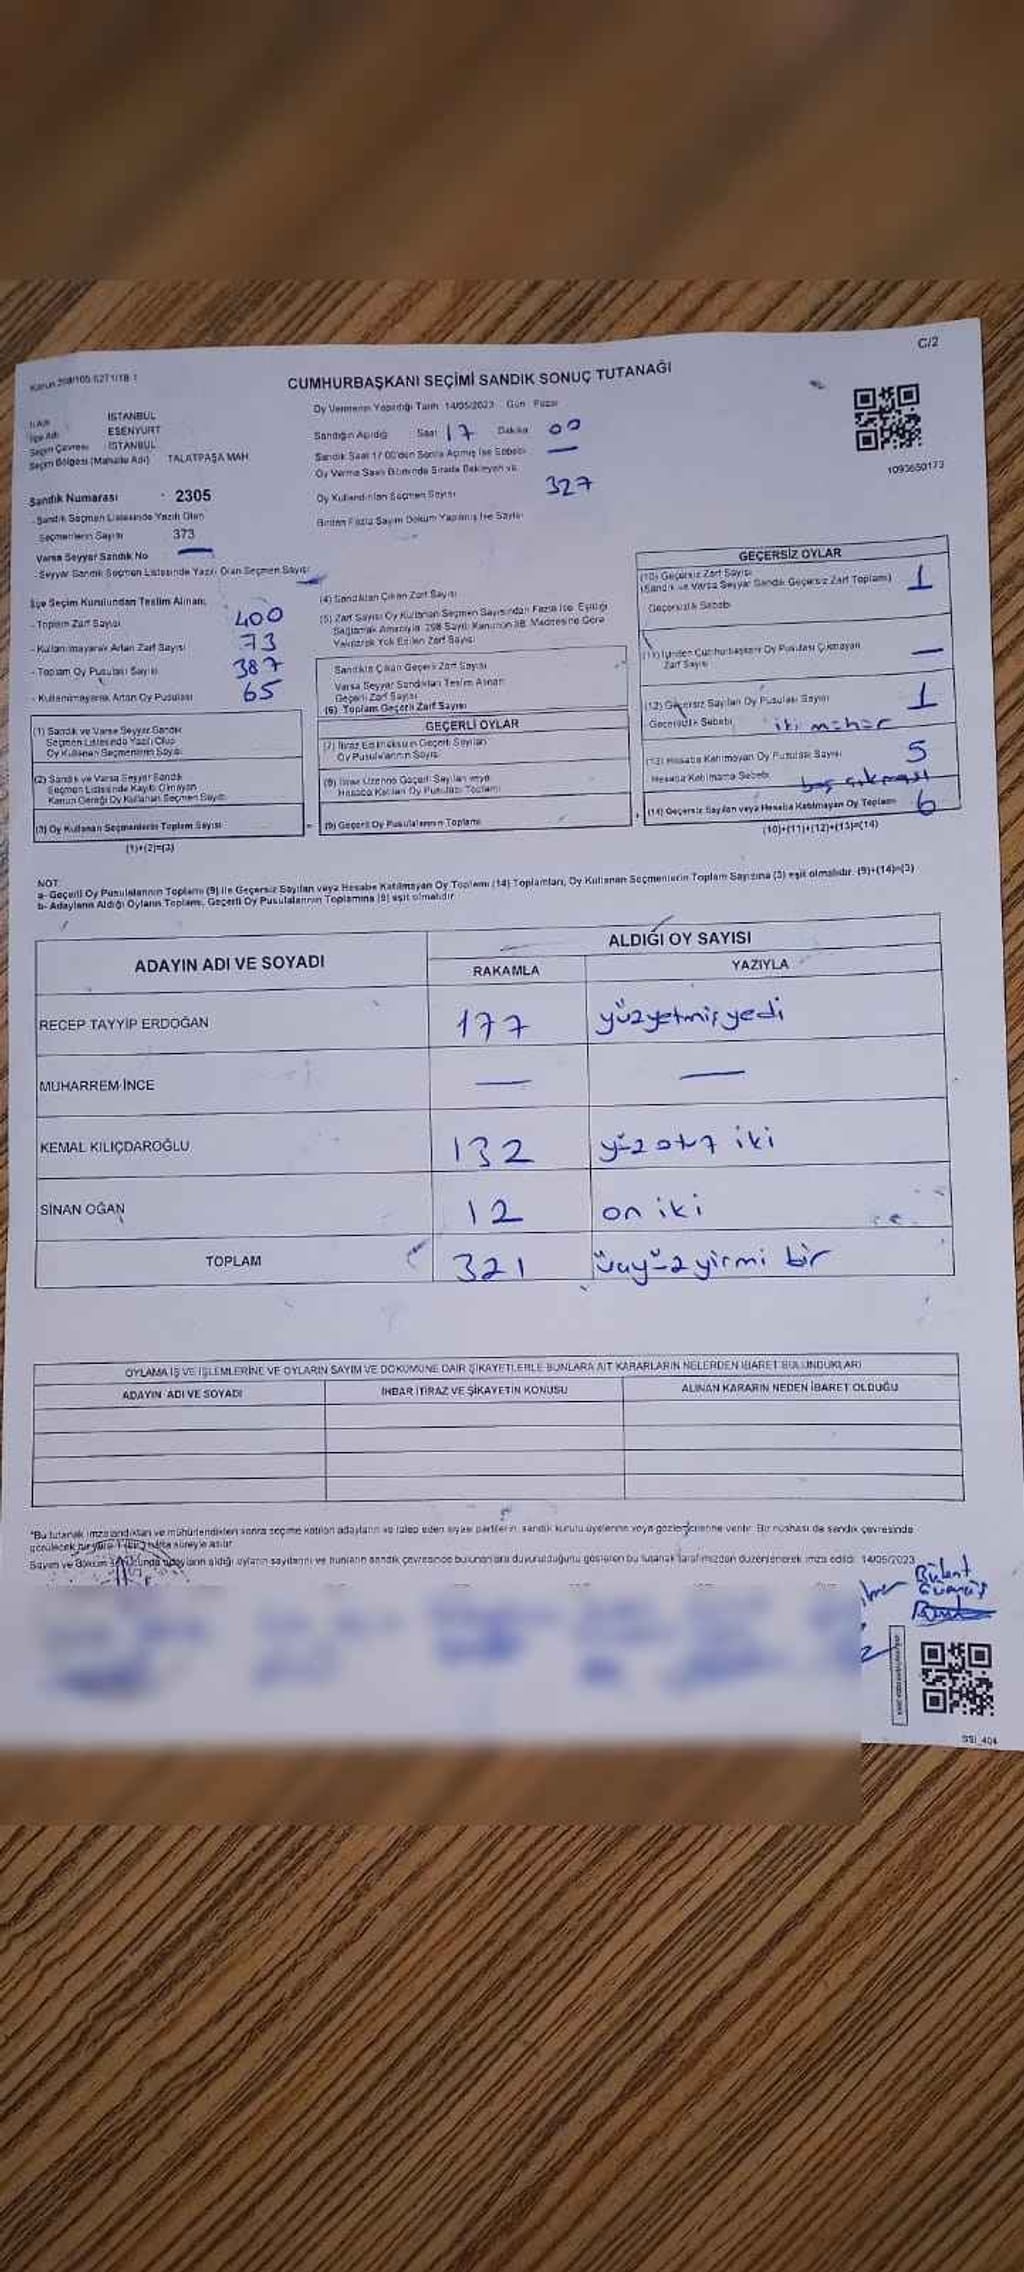 C/2
CUMHURBAŞKANI SEÇİMİ SANDIK SONUÇ TUTANAĞI
Oy Vermenin Yapıldığı Tarih 14/05/2023 Gün Pazar
İSTANBUL
İlçe Adı ESENYURT
Seçim Çevresi İSTANBUL
Seçim Bölgesi (Mahalle Adı) TALATPAŞA MAH.
Sandığın Açıldığı Saat 17 Dakika 00
Oy Kullandırılan Seçmen Sayısı 327
1093650173
Sandık Numarası : 2305
- Sandık Seçmen Listesinde Yazılı Olan
Seçmenlerin Sayısı 373
Birden Fazla Sayım Döküm Yapılmış İse Sayısı
Varsa Seyyar Sandık No —
- Seyyar Sandık Seçmen Listesinde Yazılı Olan Seçmen Sayısı —
İlçe Seçim Kurulundan Teslim Alınan;
- Toplam Zarf Sayısı 400
- Kullanılmayarak Artan Zarf Sayısı 73
- Toplam Oy Pusulası Sayısı 387
- Kullanılmayarak Artan Oy Pusulası 65
(1) Sandık ve Varsa Seyyar Sandık
Seçmen Listesinde Yazılı Olup
Oy Kullanan Seçmenlerin Sayısı
(2) Sandık ve Varsa Seyyar Sandık
Seçmen Listesinde Kayıtlı Olmayan
Kanun Gereği Oy Kullanan Seçmen Sayısı
(3) Oy Kullanan Seçmenlerin Toplam Sayısı
(1)+(2)=(3)
(4) Sandıktan Çıkan Zarf Sayısı
(5) Zarf Sayısı Oy Kullanan Seçmen Sayısından Fazla İse, Eşitliği
Sağlamak Amacıyla, 298 Sayılı Kanunun 98. Maddesine Göre
Yakılarak Yok Edilen Zarf Sayısı
Sandıkta Çıkan Geçerli Zarf Sayısı
Varsa Seyyar Sandıktan Teslim Alınan
Geçerli Zarf Sayısı
(6) Toplam Geçerli Zarf Sayısı
GEÇERLİ OYLAR
(7) İtiraz Edilmeksizin Geçerli Sayılan
Oy Pusulalarının Sayısı
(8) İtiraz Üzerine Geçerli Sayılan veya
Hesaba Katılan Oy Pusulası Toplamı
(9) Geçerli Oy Pusulalarının Toplamı
GEÇERSİZ OYLAR
(10) Geçersiz Zarf Sayısı
(Sandık ve Varsa Seyyar Sandık Geçersiz Zarf Toplamı) 1
Geçersizlik Sebebi
(11) İçinden Cumhurbaşkanı Oy Pusulası Çıkmayan
Zarf Sayısı —
(12) Geçersiz Sayılan Oy Pusulası Sayısı 1
Geçersizlik Sebebi iki mühür
(13) Hesaba Katılmayan Oy Pusulası Sayısı 5
Hesaba Katılmama Sebebi boş çıkması
(14) Geçersiz Sayılan veya Hesaba Katılmayan Oy Toplamı 6
(10)+(11)+(12)+(13)=(14)
NOT:
a- Geçerli Oy Pusulalarının Toplamı (9) ile Geçersiz Sayılan veya Hesaba Katılmayan Oy Toplamı (14) Toplamları, Oy Kullanan Seçmenlerin Toplam Sayısına (3) eşit olmalıdır. (9)+(14)=(3)
b- Adayların Aldığı Oyların Toplamı, Geçerli Oy Pusulalarının Toplamına (9) eşit olmalıdır.
ADAYIN ADI VE SOYADI ALDIĞI OY SAYISI
RAKAMLA YAZIYLA
RECEP TAYYİP ERDOĞAN 177 yüzyetmiş yedi
MUHARREM İNCE — —
KEMAL KILIÇDAROĞLU 132 yüz otuz iki
SİNAN OĞAN 12 on iki
TOPLAM 321 üçyüz yirmi bir
OYLAMA İŞ VE İŞLEMLERİNE VE OYLARIN SAYIM VE DÖKÜMÜNE DAİR ŞİKAYETLERLE BUNLARA AİT KARARLARIN NELERDEN İBARET BULUNDUKLARI
ADAYIN ADI VE SOYADI İHBAR İTİRAZ VE ŞİKAYETİN KONUSU ALINAN KARARIN NEDEN İBARET OLDUĞU
*Bu tutanak imzalandıktan ve mühürlendikten sonra seçime katılan adayların ve talep eden siyasi partilerin, sandık kurulu üyelerine veya gözlemcilerine verilir. Bir nüshası da sandık çevresinde
görülecek bir yere 1 (bir) hafta süreyle asılır.
Sayım ve döküm sonucunda adayların aldığı oyların sayılarını ve bunların sandık çevresinde bulunanlara duyurulduğunu gösteren bu tutanak tarafımızdan düzenlenerek imza edildi. 14/05/2023
Bülent